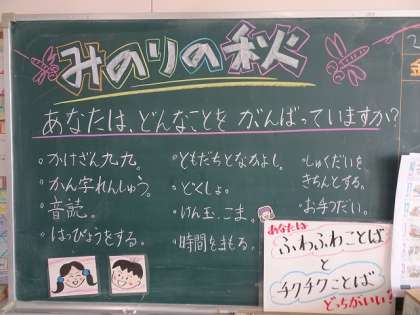 みのりの秋
あなたは、どんなことを がんばっていますか?
・かけざん九九。
・かん字れんしゅう。
・音読。
・はっぴょうをする。
・ともだちとなかよし。
・どくしょ。
・けん玉、こま。
・時間をまもる。
・しゅくだいを
きちんとする。
・お手つだい。
あなたは
ふわふわことば
と
チクチクことば
どっちがいい?